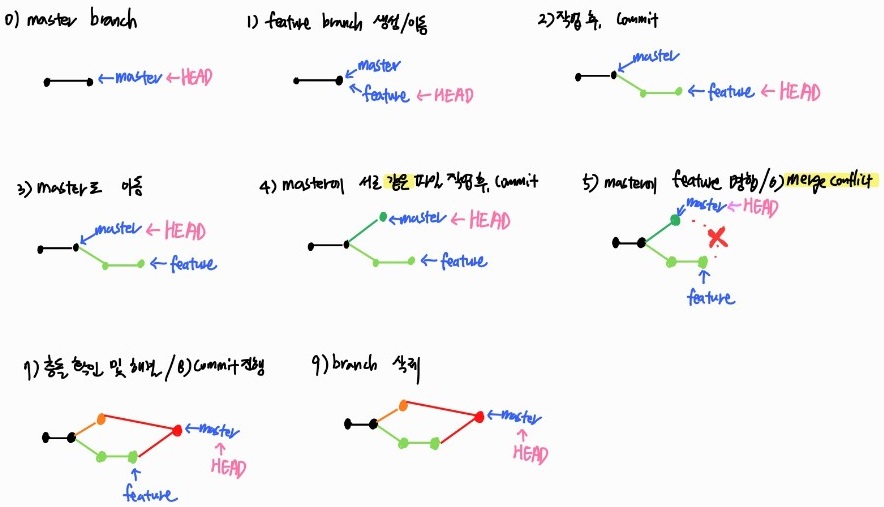 0) master branch
←master ←HEAD
1) feature branch 생성/이동
master
feature ←HEAD
2) 작업 후, commit
master
←feature ←HEAD
3) master로 이동
master ←HEAD
←feature
4) master에 서로 같은 파일 작업 후, commit
←master ←HEAD
←feature
5) master에 feature 병합/6) merge conflict
master ←HEAD
feature
7) 충돌 확인 및 해결/8) commit 진행
←master
HEAD
feature
9) branch 삭제
←master
HEAD